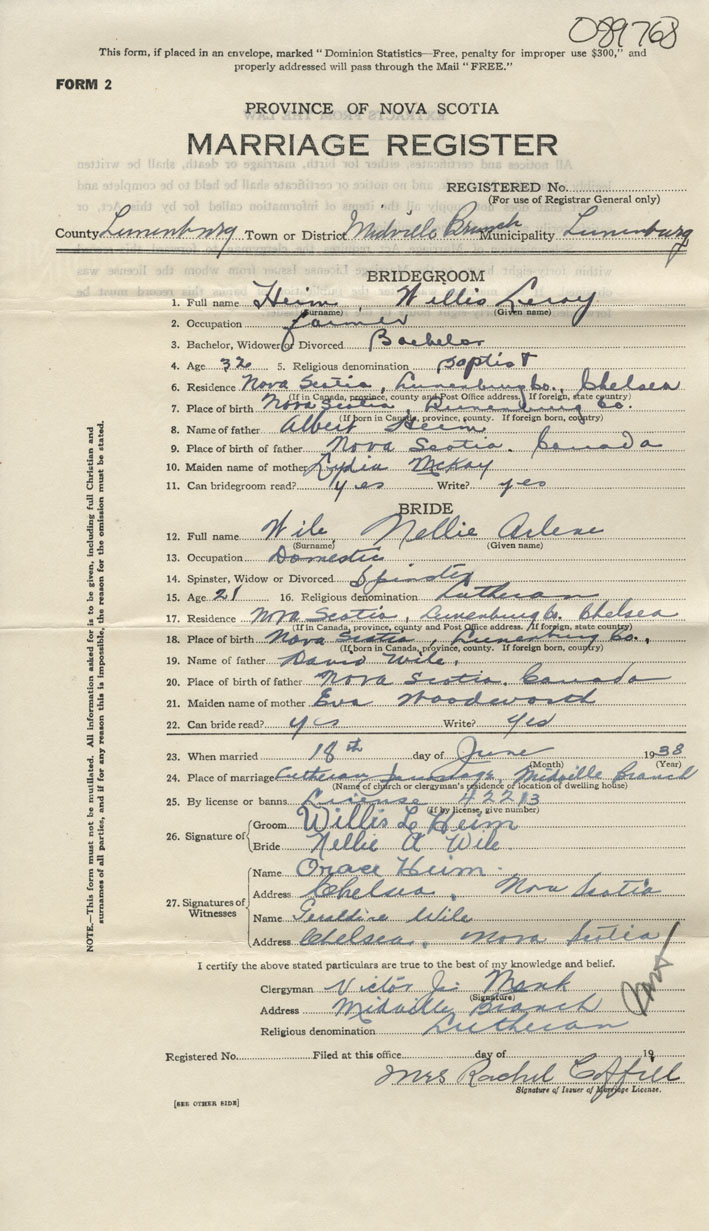 089768
This form, if placed in an envelope, marked "Dominion Statistics—Free, penalty for improper use $300," and
properly addressed will pass through the Mail "FREE."
FORM 2
PROVINCE OF NOVA SCOTIA
MARRIAGE REGISTER
REGISTERED No.
(For use of Registrar General only)
County Lunenburg Town or District Midville Branch Municipality Lunenburg
BRIDEGROOM
1. Full name Heim, Willis Leroy
(Surname) (Given name)
2. Occupation farmer
3. Bachelor, Widower or Divorced Bachelor
4. Age 32 5. Religious denomination Baptist
6. Residence Nova Scotia, Lunenburg Co., Chelsea
(If in Canada, province, county and Post Office address. If foreign, state country)
7. Place of birth Nova Scotia, Lunenburg Co.
(If born in Canada, province, county. If foreign born, country)
8. Name of father Albert Heim
9. Place of birth of father Nova Scotia. Canada
10. Maiden name of mother Lydia McKay
11. Can bridegroom read? yes Write? yes
BRIDE
12. Full name Wile, Nellie Arlene
(Surname) (Given name)
13. Occupation Domestic
14. Spinster, Widow or Divorced Spinster
15. Age 21 16. Religious denomination Lutheran
17. Residence Nova Scotia, Lunenburg Co. Chelsea
(If in Canada, province, county and Post Office address. If foreign, state country)
18. Place of birth Nova Scotia, Lunenburg Co.,
(If born in Canada, province, county. If foreign born, country)
19. Name of father David Wile.
20. Place of birth of father Nova Scotia. Canada
21. Maiden name of mother Eva Woodworth
22. Can bride read? yes Write? yes
23. When married 18th day of June 1938
(Month) (Year)
24. Place of marriage Lutheran Parsonage, Midville Branch
(Name of church or clergyman's residence or location of dwelling house)
25. By license or banns License 42213
(If by license, give number)
26. Signature of
Groom Willis L Heim
Bride Nellie A Wile.
27. Signatures of Witnesses
Name Orace Heim.
Address Chelsea, Nova Scotia
Name Geraldine Wile
Address Chelsea, Nova Scotia
I certify the above stated particulars are true to the best of my knowledge and belief.
Clergyman Victor J. Monk
(Signature)
Address Midville Branch
Religious denomination Lutheran
Registered No. Filed at this office day of 19
Mrs Rachel Coffill
Signature of Issuer of Marriage License.
[SEE OTHER SIDE]
NOTE.—This form must not be mutilated. All information asked for is to be given, including full Christian and
surnames of all parties, and if for any reason this is impossible, the reason for the omission must be stated.